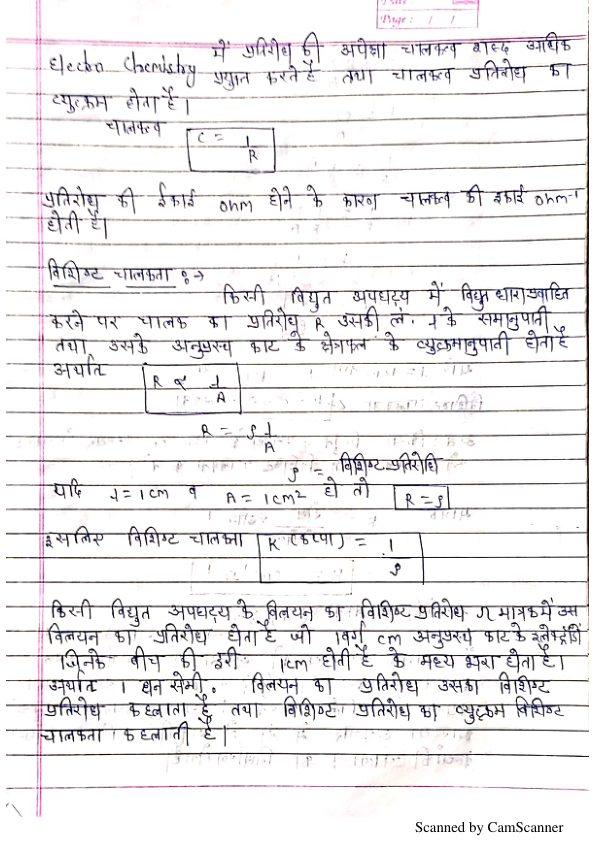 Page: / /
Electro Chemistry में प्रतिरोध की अपेक्षा चालकत्व शब्द अधिक
प्रयुक्त करते है तथा चालकत्व प्रतिरोध का
व्युत्क्रम होता है।
चालकत्व
C = 1/R
प्रतिरोध की ईकाई ohm होने के कारण चालकत्व की इकाई ohm⁻¹
होती है।
विशिष्ट चालकता :→
किसी विद्युत अपघटय में विद्युत धारा प्रवाहित
करने पर चालक का प्रतिरोध R उसकी लं. l के समानुपाती
तथा उसके अनुप्रस्थ काट के क्षेत्रफल के व्युत्क्रमानुपाती होता है
अर्थात
R ∝ l/A
R = ρ l/A
ρ = विशिष्ट प्रतिरोध
यदि l = 1cm व A = 1cm² हो तो R = ρ
इसलिए विशिष्ट चालकता K (कप्पा) = 1/ρ
किसी विद्युत अपघटय के विलयन का विशिष्ट प्रतिरोध Ω मात्रक में उस
विलयन का प्रतिरोध होता है जो 1वर्ग cm अनुप्रस्थ काट के इलेक्ट्रोडो
जिनके बीच की दूरी 1cm होती है के मध्य भरा होता है।
अर्थात 1 घन सेमी. विलयन का प्रतिरोध उसका विशिष्ट
प्रतिरोध कहलाता है तथा विशिष्ट प्रतिरोध का व्युत्क्रम विशिष्ट
चालकता कहलाती है।
Scanned by CamScanner